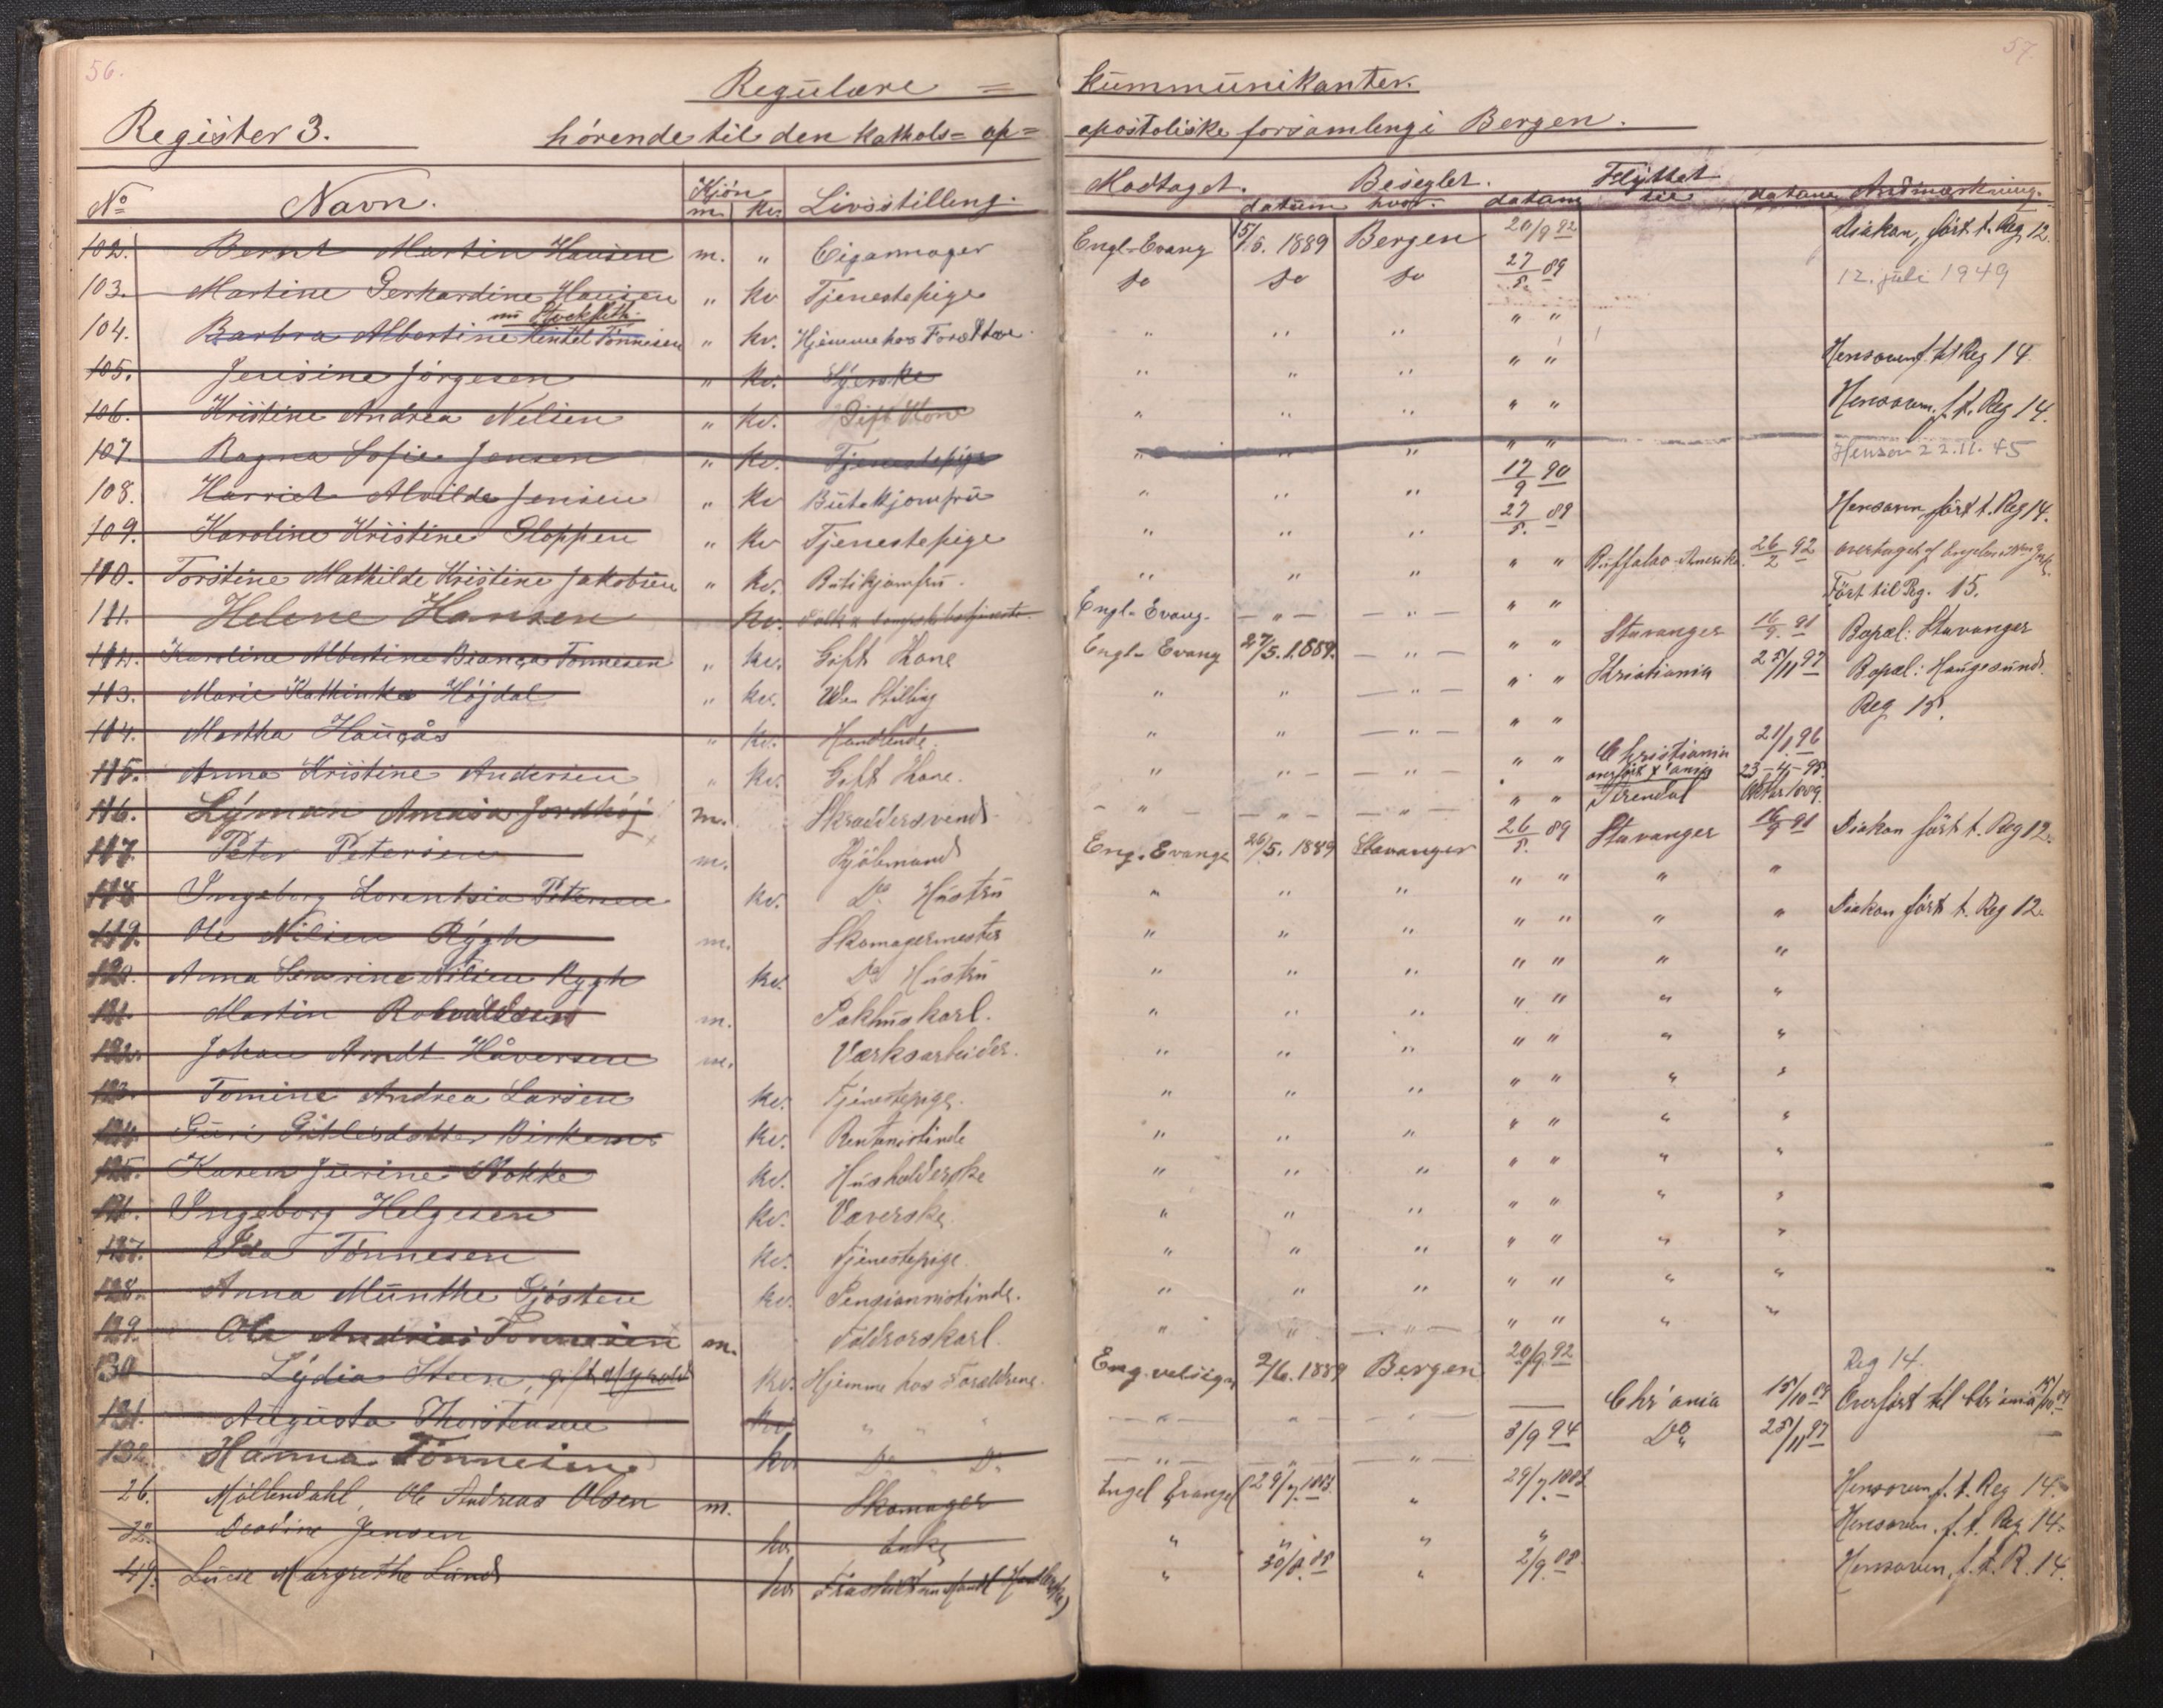 56.
57.
Regulære = Kummunikanter.
Register 3. hørende til den kathols= ap= apostoliske forsamling i Bergen.
No Navn. Kjøn m. kv. Livsstilling. Modtaget. datum Beseglet. hvor. datum Flyttet til datum Anmærkning.
102. Bernt Martin Hansen m. " Cigarmager Engl-Evang 5/5. 1889 Bergen 20/9 92 Diakon, ført t. Reg 12.
103. Martine Gerhardine Hansen " kv Tjenestepige do do do 27/5. 89 12. juli 1949
nu Stockfleth
104. Barbra Albertine Kintel Tønnesen " kv. Hjemme hos Forældre " " " " "
105. Jensine Jørgesen " kv. Syerske " " " " " Hensoven f. til Reg 14
106. Kristine Andrea Nelsen " kv. Gift Kone " " " " " Hensoven. f. t. Reg 14.
107. Ragna Sofie Jensen " kv. Tjenestepige " " " " " Hensov 22.11.45
108. Harriet Alvilde Jensen " kv Butikjomfru " " " 12/9 90
109. Karoline Kristine Gloppen " kv Tjenestepige " " " 27/5. 89 Hensoven ført t. Reg 14.
110. Torstine Mathilde Kristine Jakobsen " kv. Butikjomfru. " " " " " Buffalao-Amerika. 26/2 92 overtaget af Engelen
111. Helene Hansen kv. Engl-Evang. — " — — " — " " Ført til Reg. 15.
112. Karoline Albertine Bianca Tønnesen " kv. Gift Kone Engl-Evang 27/5. 1889. — " — " " Stavanger 16/9. 91 Bopæl: Stavanger
113. Marie Kathinka Højdal " kv. Uden Stilling " " — " — " " Kristiania 25/11 97 Bopæl: Haugesund.
114. Martha Haugås " kv. Handlende " " — " — " " Reg 15.
115. Anna Kristine Andersen " kv. Gift Kone. " " — — " — " " Christiania 21/1. 96
overført x'ania 23-4-95.
116. Lyman Amasa Jordhøj m. Skræddersvend — " — — " — — " — " " Arendal Oktbr 1889.
117. Peter Petersen m. Kjøbmand Eng. Evange 26/5. 1889 Stavanger 26/5. 89 Stavanger 16/9 91 Diakon ført t. Reg 12.
118 Ingeborg Lorentsia Petersen kv. Do Hustru " " " " " " "
119. Ole Nilsen Rygh m. Skomagermester " " " " " " " Diakon ført t. Reg 12.
120. Anna Severine Nilsen Rygh kv. Do Hustru " " " " " " "
121. Martin Rolvaldsen m. Pakhuskarl. " " " " " " "
122. Johan Arndt Håversen m. Værksarbeider. " " " " " " "
123. Tomine Andrea Larsen kv. Tjenestepige. " " " " " " "
124. Guri Gitlesdotter Birkenes kv. Rentenistinde " " " " " " "
125. Karen Jurine Stokke kv. Husholderske " " " " " " "
126. Ingeborg Helgesen kv. Væverske. " " " " " " "
127. Ida Tønnesen kv. Tjenestepige. " " " " " " "
128. Anna Munthe Gjøsten kv. Pensionistinde. " " " " " " "
129. Ole Andreas Tønnesen m. " " — " — " " " "
130 Lydia Steen, gift kv. Hjemme hos Forældrene. Eng. velsign 2/6. 1889 Bergen 20/9. 92 Reg 14.
131. Augusta Thorstensen kv. " " " — " — — " — — " — — Chr'ania 15/10 89 Overført til Chr'ania 15/10 89
132. Hanna Tønnesen kv. Do " Do — " — — " — — " — 3/9 94 Do 25/11 97 —
26. Møllendahl, Ole Andreas Olsen m. Skomager Engel Evangel 29/7. 1885. " 29/7. 1885 Hensoven f. t. Reg 14.
32. Deodine Jensen kv. Enke " " " " Hensoven. f. t. Reg 14.
49. Lucie Margrethe Lund kv. " 30/8. 85 " 2/9. 88. Hensoven. f. t. R. 14.